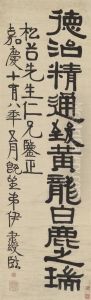 德治精通致黃龍白鹿之瑞
松谷先生仁兄鑒正
嘉慶十有八年五月既望弟伊秉綬臨